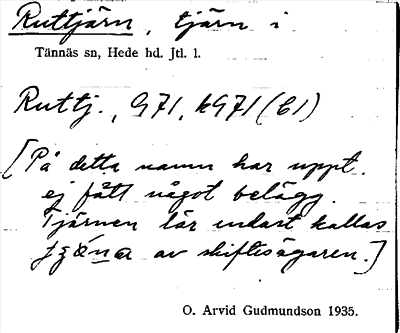 Ruttjärn, tjärn i
Tännäs sn, Hede hd. Jtl. l.
Ruttj., G71, kG71 (61)
[På detta namn har uppt.
ej fått något belägg.
Tjärnen lär endast kallas
av skiftesägaren.]
O. Arvid Gudmundson 1935.